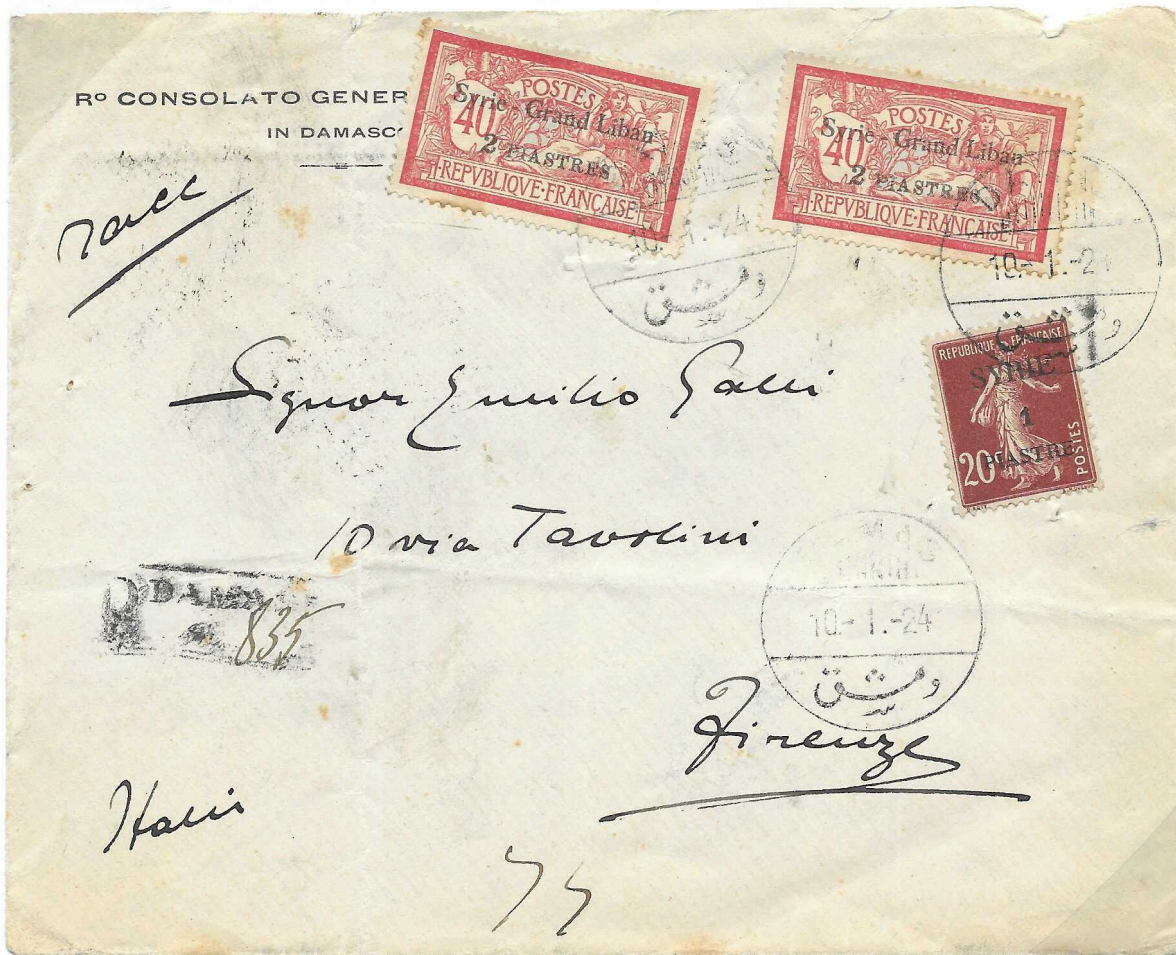 Rº CONSOLATO GENER
IN DAMASC
Racc
POSTES
Syrie - Grand Liban
40
2 PIASTRES
REPVBLIQVE·FRANÇAISE
POSTES
Syrie - Grand Liban
40
2 PIASTRES
REPVBLIQVE·FRANÇAISE
10.-1.-24
دمشق
10.-1.-24
دمشق
REPUBLIQUE FRANÇAISE
SYRIE
1
PIASTRE
20
POSTES
Signor Emilio Galli
10 via Tavolini
10.-1.-24
دمشق
R DAMAS
835
Firenze
Italia